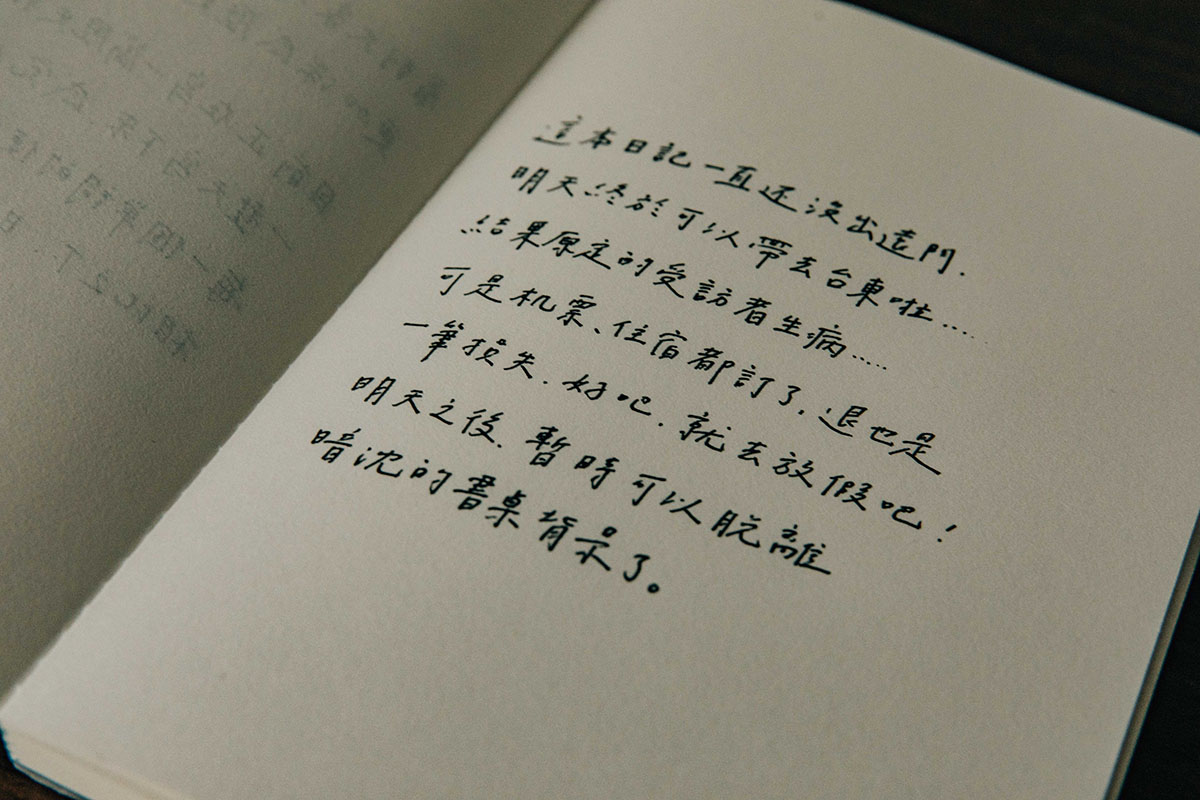 這本日記一直还沒出遠門.
明天終於可以帶去台東啦....
結果原定的受訪者生病....
可是机票、住宿都訂了, 退也是
一筆損失. 好吧. 就去放假吧!
明天之後、暫時可以脫離
暗沈的書桌背景了。